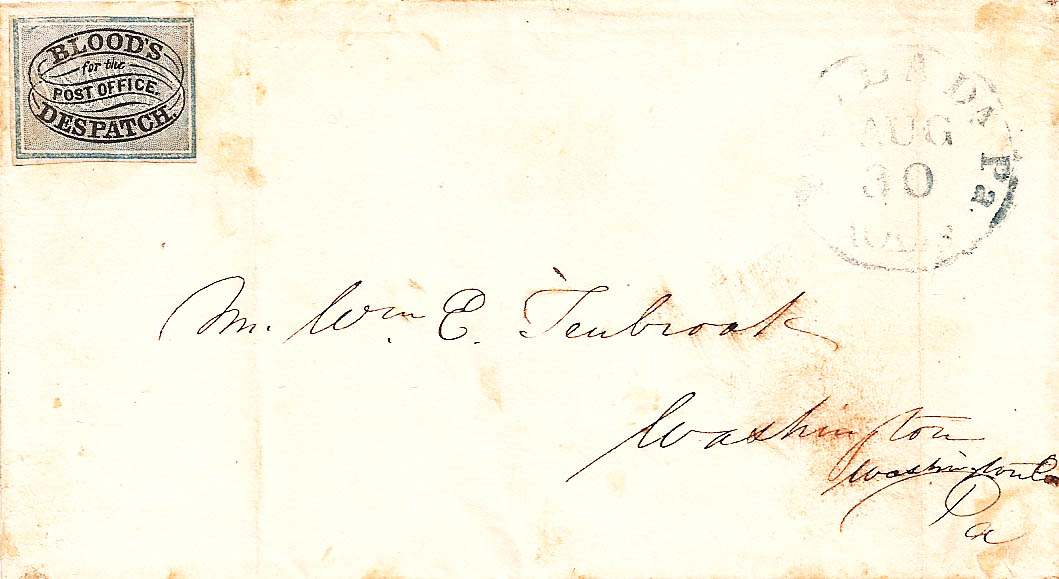 BLOOD'S
for the
POST OFFICE.
DESPATCH.
AUG
30
Pa.
Mr. Wm E. Tenbrook
Washington
Washington Co
Pa